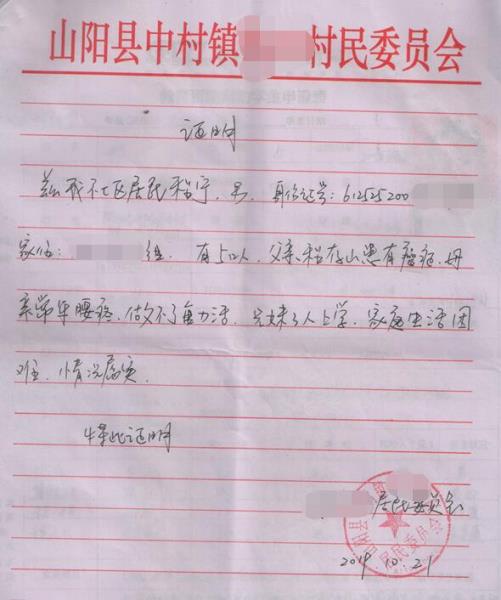 山阳县中村镇 村民委员会
证明
兹我社区居民程宁,男,身份证号:61252520
家住: 组。有5口人,父亲程存山患有 病,母
亲常年腰疼,做不了重力活,兄妹3人上学,家庭生活困
难,情况属实。
特此证明
居民委员会
山阳县 居民委员会
2014.10.21